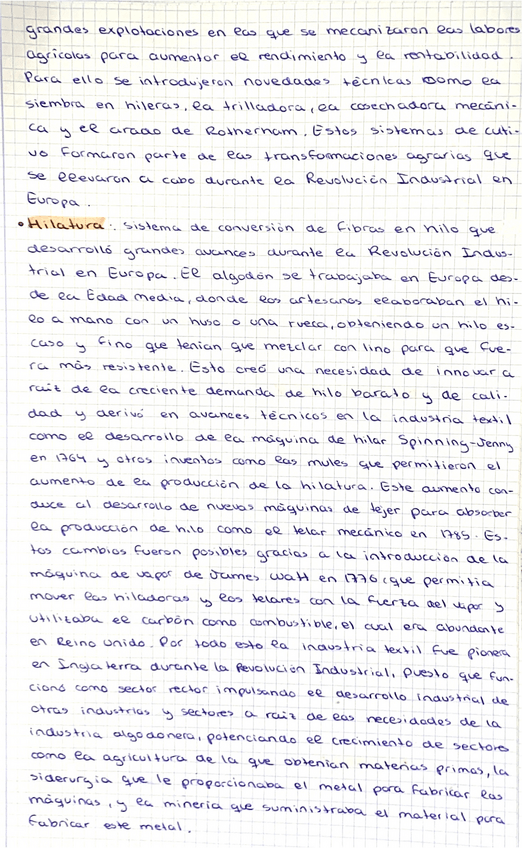 grandes explotaciones en las que se mecanizaron las labores
agrícolas para aumentar el rendimiento y la rentabilidad.
Para ello se introdujeron novedades técnicas como la
siembra en hileras, la trilladora, la cosechadora mecáni-
ca y el arado de Rotherham. Estos sistemas de culti-
vo formaron parte de las transformaciones agrarias que
se llevaron a cabo durante la Revolución Industrial en
Europa.
• Hilatura: sistema de conversión de fibras en hilo que
desarrolló grandes avances durante la Revolución Indus-
trial en Europa. El algodón se trabajaba en Europa des-
de la Edad media, donde los artesanos elaboraban el hi-
lo a mano con un huso o una rueca, obteniendo un hilo es-
caso y fino que tenían que mezclar con lino para que fue-
ra más resistente. Esto creó una necesidad de innovar a
raíz de la creciente demanda de hilo barato y de cali-
dad y derivó en avances técnicos en la industria textil
como el desarrollo de la máquina de hilar Spinning-Jenny
en 1764 y otros inventos como las mules que permitieron el
aumento de la producción de la hilatura. Este aumento con-
duce al desarrollo de nuevas máquinas de tejer para absorber
la producción de hilo como el telar mecánico en 1785. Es-
tos cambios fueron posibles gracias a la introducción de la
máquina de vapor de James Watt en 1776 que permitía
mover las hiladoras y los telares con la fuerza del vapor y
utilizaba el carbón como combustible, el cual era abundante
en Reino Unido. Por todo esto la industria textil fue pionera
en Inglaterra durante la Revolución Industrial, puesto que fun-
cionó como sector rector impulsando el desarrollo industrial de
otras industrias y sectores a raíz de las necesidades de la
industria algodonera, potenciando el crecimiento de sectores
como la agricultura de la que obtenían materias primas, la
siderurgia que le proporcionaba el metal para fabricar las
máquinas, y la minería que suministraba el material para
fabricar este metal.